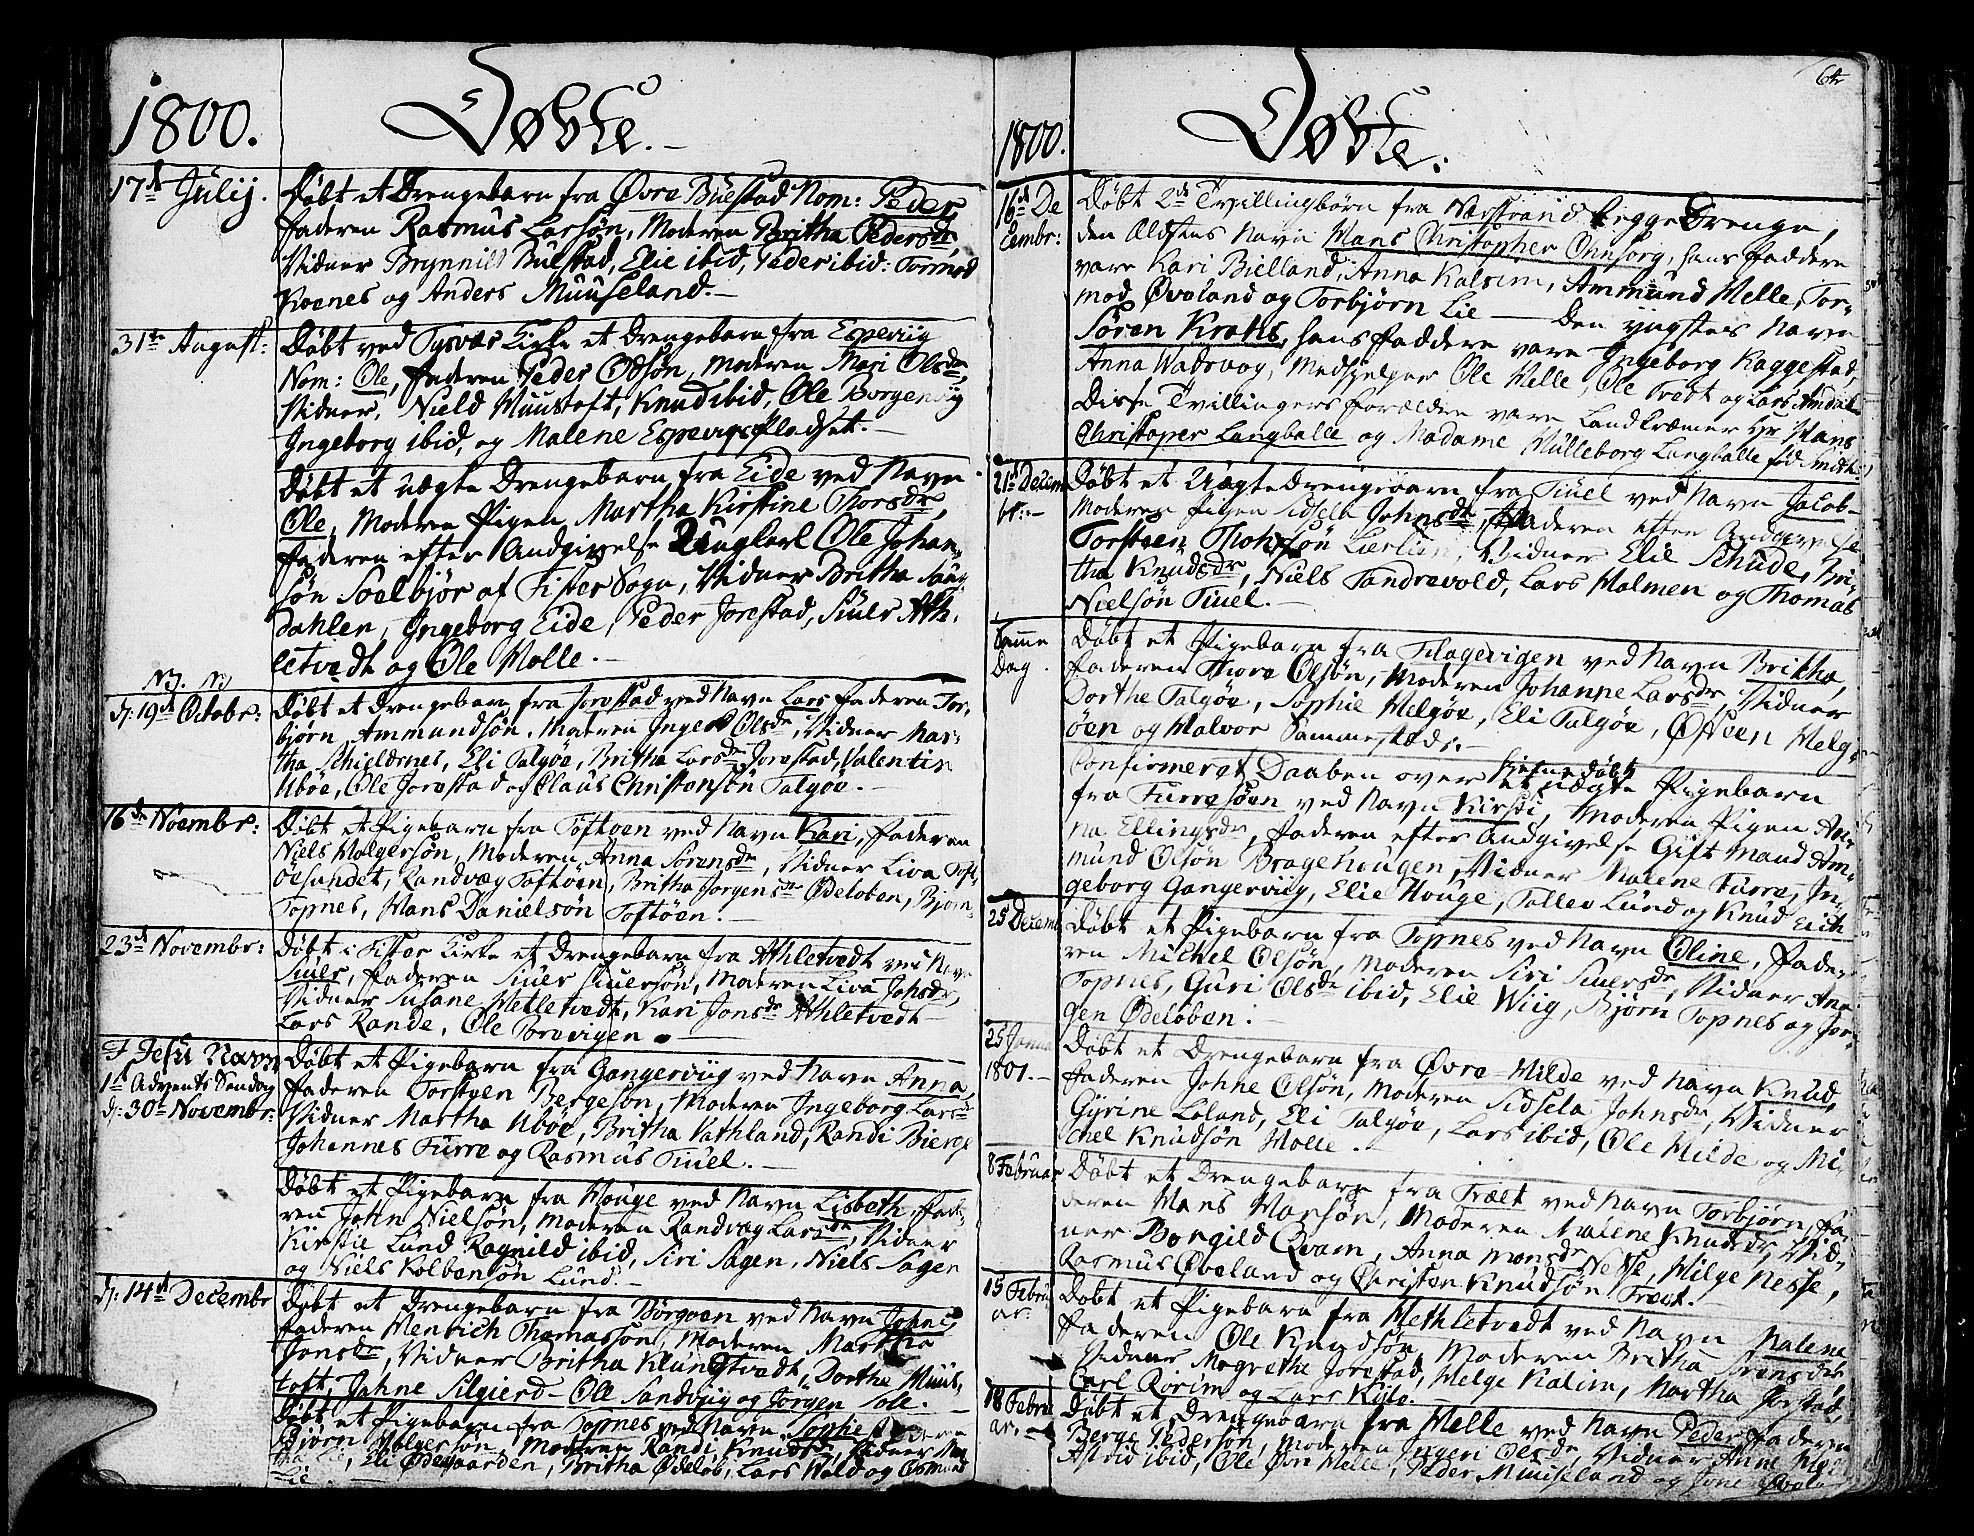 1800. Døbte.
17de Julij. Døbt et Drengebarn fra Øvre Buestad Nom: Peder
faderen Rasmus Larsøn, Moderen Britha Pedersdr,
Vidner Brynnild Buestad, Elie ibid, Peder ibid: Tormod
Koenes og Anders Muuseland.
31te August: Døbt ved Tysvær Kirke et Drengebarn fra Espeviig
Nom: Ole, faderen Peder Odsøn, Moderen Mari Olsdr,
Vidner, Nield Muustoft, Knud ibid, Ole Borgenvig
Ingeborg ibid, og Malene Espevigspladset.
Døbt et uægte Drengebarn fra Eide ved Navn
Ole, Moderen Pigen Martha Kirstine Thorsdr,
faderen efter Andgivelse Ungkarl Ole Johan-
søn Soelbjør af Fister Sogn, Vidner Britha
Dahlen, Ingeborg Eide, Peder Jørestad, Siuer Ath-
letvedt og Ole Molle.
d: 19de Octobr: Døbt et Drengebarn fra Jørestad ved Navn Lars faderen Tor-
biørn Ammundsøn, Moderen Inger Olsdr, Vidner Mar-
tha Schieldernes, Eli Talgøe, Britha Larsdr Jørestad, Valentin
Ubøe, Ole Jørestad og Claus Christensøn Talgøe.
16de Noembr: Døbt et Pigebarn fra Toftøen ved Navn Kari, faderen
Niels Holgersøn, Moderen Anna Sørensdr, Vidner Liva Toft-
øesundet, Randvæg Toftøen, Britha Jørgensdr Ødeløben, Bjørn
Topnes, Hans Danielsøn Toftøen.
23de Novembr: Døbt i Fister Kirke et Drengebarn fra Athletvedt ved Navn
Siuer, faderen Siuer Siuersøn, Moderen Liva Johsdr,
Vidner Susane Metletvedt, Kari Jonsdr Athletvedt
Lars Rande, Ole Torevigen.
I Jesu Navn Døbt et Pigebarn fra Gangerviig ved Navn Anna,
1te Advents Søndag faderen Torsteen Bergesøn, Moderen Ingeborg Larsdr
d: 30te Novembr: Vidner Martha Ubøe, Britha Vathland, Randi Bierge
Johannes Furre og Rasmus Tiuel.
Døbt et Pigebarn fra Houge ved Navn Lisbeth, fade-
ren John Nielsøn, Moderen Randvæg Larsdr, Vidner
Kirstie Lund Ragnild ibid, Siri Sagen, Niels Sagen
og Niels Kolbensøn Lund.
d: 14de Decembr Døbt et Drengebarn fra Børgøen ved Navn Johne
faderen Henrich Thomassøn, Moderen Martha
Jonsdr, Vidner Britha Klungtvedt, Dorthe Muus-
toft, Johne Silgierd, Ole Sandvig og Jørgen Sole.
Døbt et Pigebarn fra Topnes ved Navn Sophie faderen
Biørn Holgersøn, Moderen Randi Knudsdr, Vidner Mar-
tha Lie, Eli Ødegaarden, Britha Ødeløb, Lars Wold og Osmund
Lie
64
1800. Døbte.
16de De- Døbt 2de Tvillingbørn fra Nærstrand begge Drenge,
cembr: den Ældstes Navn Hans Christopher Onnsorg, hans faddere
vare Kari Bielland, Anna Kalsem, Ammund Helle, Tor-
mod Øveland og Torbjørn Lie — Den yngstes Navn
Søren Krohs, hans faddere vare Ingeborg Kaggestad,
Anna Wadsvog, Medhielper Ole Helle, Ole Trædt og Lars Amdal
Disse Tvillingers forældre vare Landkræmer Hr Hans
Christoper Langballe og Madame Mulleborg Langballe fød Smith.
21de Decem- Døbt et Uægte Drengebarn fra Tiuel ved Navn Jacob
br: Moderen Pigen Sidsela Johnsdr, faderen efter Andgivelse
Torsteen Thomsøn Lierlien, Vidner Elie Schude, Bri-
tha Knudsdr, Niels Tandrevold, Lars Malmen og Thomas
Nielsøn Tiuel.
Samme Døbt et Pigebarn fra Tilagevigen ved Navn Britha,
Dag. faderen Thore Olsøn, Moderen Johanne Larsdr, Vidner
Dorthe Talgøe, Sophie Helgøe, Eli Talgøe, Østeen Helg-
øen og Halvor Sammestæds.
Confirmeret Daaben over et hjemedøbt uægte Pigebarn
fra Furresøen ved Navn Kirsti, Moderen Pigen An-
na Ellingsdr, faderen efter Andgivelse Gift Mand Am-
mund Olsøn Bragehougen, Vidner Malene Furre, In-
geborg Gangerviig, Elie Houge, Tollev Lund og Knud Eich
25 Decem Døbt et Pigebarn fra Topnes ved Navn Oline, fade-
ren Michel Olsøn, Moderen Siri Siuersdr, Vidner Ane
Topnes, Guri Olsdr ibid, Elie Wiig, Bjørn Topnes og Jør-
gen Ødeløben.
25 Janua Døbt et Drengebarn fra Øvre-Hilde ved Navn Knud,
1801. faderen Johne Olsøn, Moderen Sidsela Johnsdr, Vidner
Gyrine Leland, Eli Talgøe, Lars ibid, Ole Hilde og Mi-
chel Knudsøn Molle.
8 Februar Døbt et Drengebarn fra Træet ved Navn Torbjørn, fa-
deren Hans Hansøn, Moderen Malene Knudsdr, Vid-
ner Borgild Qvam, Anna Monsdr Nesse, Hilge Nesse,
Rasmus Øveland og Christen Knudsøn Træet.
15 Febru- Døbt et Pigebarn fra Methletvedt ved Navn Malene
ar: faderen Ole Knudsøn, Moderen Britha Sørensdr
Vidner Magrethe Jørestad, Helge Kalim, Martha Jørstad,
Carl Rorim og Lars Kide.
18 Febru- Døbt et Drengebarn fra Helle ved Navn Peder faderen
ar. Berge Pedersøn, Moderen Ingeri Olsdr, Vidner Anne Helle
Astrid ibid, Ole Øvre Helle, Peder Muuseland og Jone